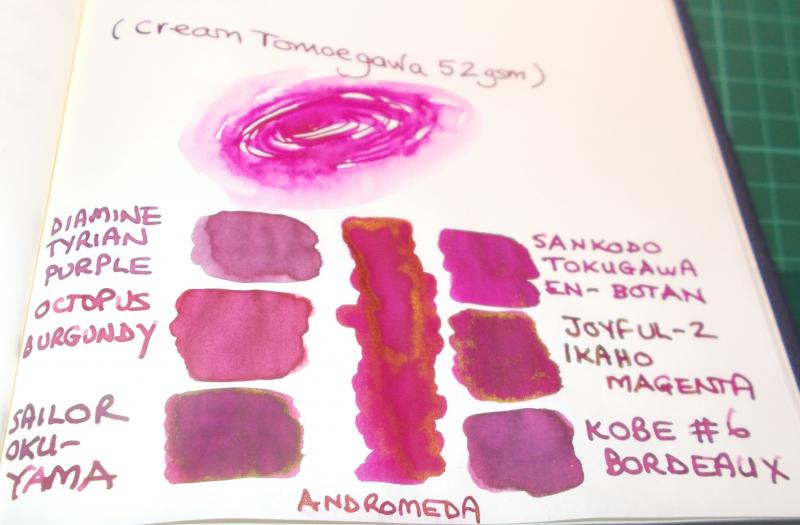 (Cream Tomoegawa 52gsm)
DIAMINE
TYRIAN
PURPLE
OCTOPUS
BURGUNDY
SAILOR
OKU-
YAMA
SANKODO
TOKUGAWA
EN-BOTAN
JOYFUL-2
IKAHO
MAGENTA
KOBE #6
BORDEAUX
ANDROMEDA